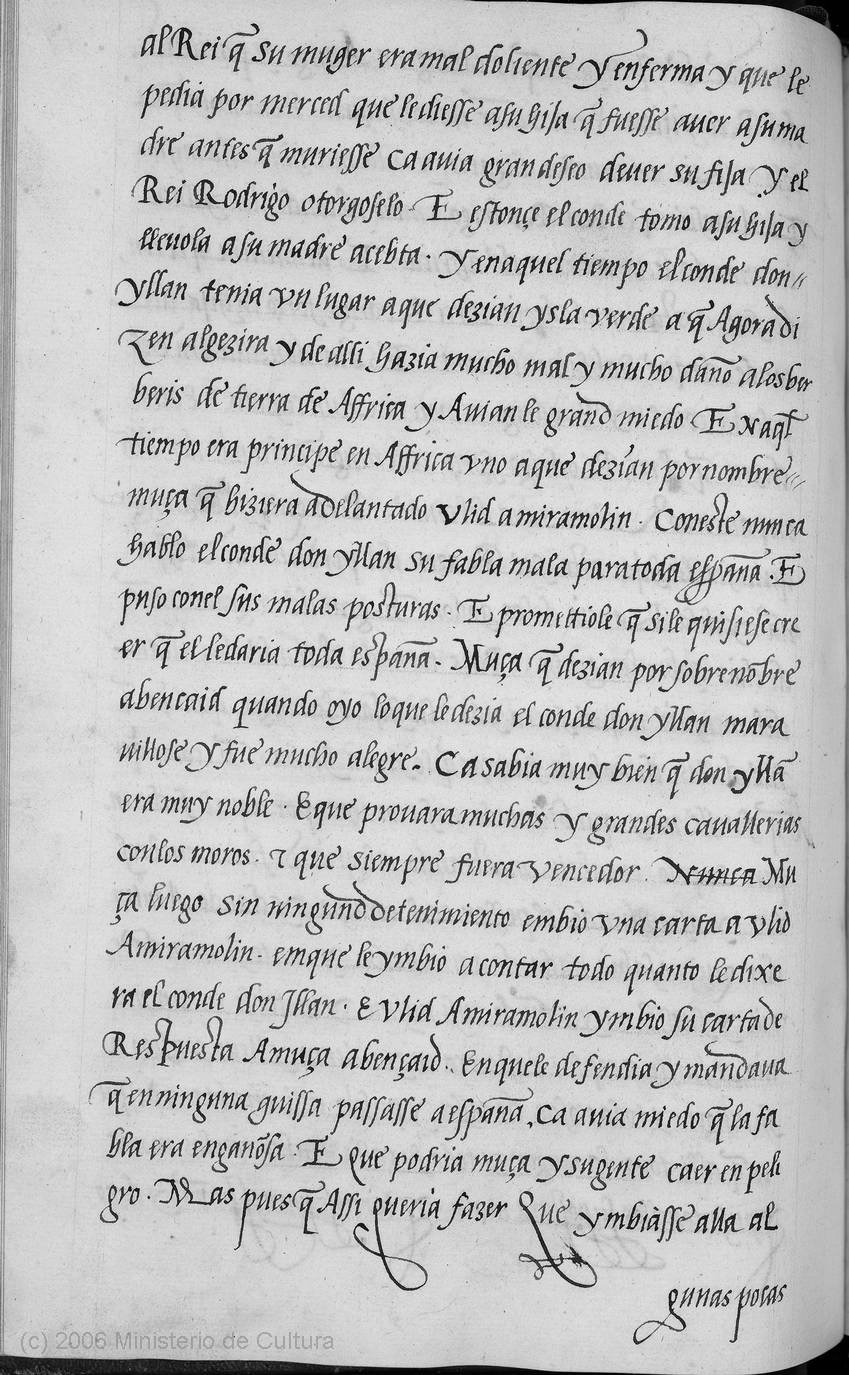 al Rei q̃ su muger era mal doliente y enferma y que le
pedia por merced que le diesse a su hija q̃ fuesse a ver a su ma
dre antes q̃ muriesse Ca avia gran deseo de ver su fija Y el
Rei Rodrigo otorgoselo. E estonçe el conde tomo a su hija y
llevola a su madre a cebta. Y en aquel tiempo el conde don〃
yllan tenia vn lugar a que dezian ysla verde a q̃ Agora di
zen algezira y de alli hazia mucho mal y mucho daño a los ber
beris de tierra de Affrica y Avian le grand miedo E N aq̃l
tiempo era principe en Affrica vno a que dezian por nombre〃
muça q̃ hiziera adelantado vlid amiramolin. Con este nunca
hablo el conde don yllan su fabla mala para toda españa. E
puso con el sus malas posturas. E promettiole q̃ si le quisiese cre
er q̃ el le daria toda españa. Muça q̃ dezian por sobrenõbre
abencaid quando oyo lo que le dezia el conde don yllan mara
villose y fue mucho alegre. Ca sabia muy bien q̃ don yllã
era muy noble. E que provara muchas y grandes cavallerias
con los moros. τ que siempre fuera vencedor. Nunca Mu
ça luego sin ningund detenimiento embio vna carta a vlid
Amiramolin. em que le ymbio a contar todo quanto le dixe
ra el conde don Jllan. E Vlid Amiramolin ymbio su carta de
Respuesta A muça abençaid. En que le defendia y mandava
q̃ en ninguna guissa passasse a españa, Ca avia miedo q̃ la fa
bla era engañosa. E Que podria muça y su gente caer en peli
gro. Mas pues q̃ Assi queria fazer Que ymbiasse alla al
gunas pocas
(c) 2006 Ministerio de Cultura